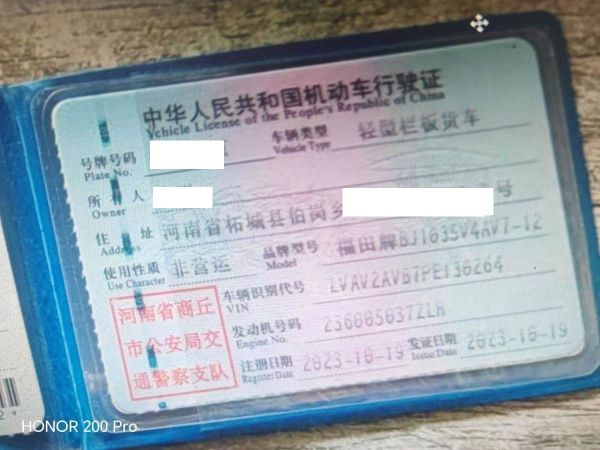 中华人民共和国机动车行驶证
Vehicle License of the People's Republic of China
号牌号码
Plate No.
车辆类型 轻型栏板货车
Vehicle Type
所有人
Owner
住址 河南省柘城县伯岗乡 号
Address
使用性质 非营运
Use Character
品牌型号 福田牌BJ1035V4AV7-12
Model
河南省商丘
市公安局交
通警察支队
车辆识别代号 LVAV2AVB7PE136264
VIN
发动机号码
Engine No.
注册日期 2023-10-19
Register Date
发证日期 2023-10-19
Issue Date
HONOR 200 Pro